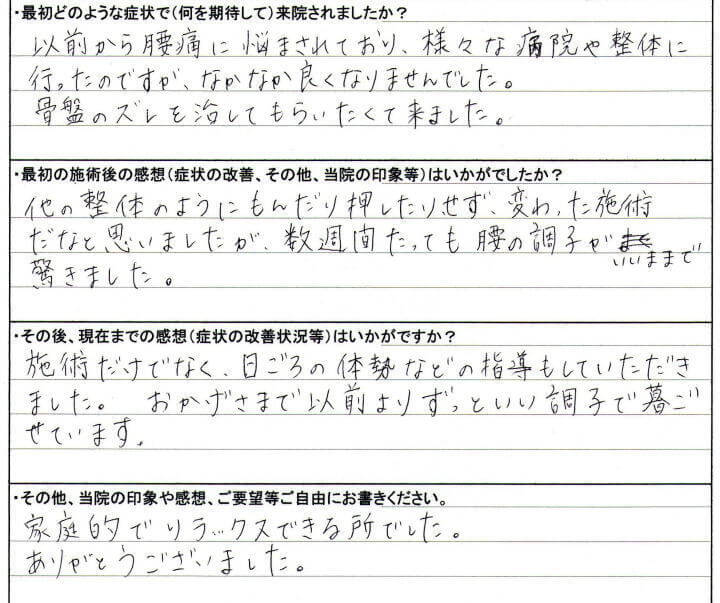 ・最初どのような症状で(何を期待して)来院されましたか？
以前から腰痛に悩まされており、様々な病院や整体に
行ったのですが、なかなか良くなりませんでした。
骨盤のズレを治してもらいたくて来ました。
・最初の施術後の感想(症状の改善、その他、当院の印象等)はいかがでしたか？
他の整体のようにもんだり押したりせず、変わった施術
だなと思いましたが、数週間たっても腰の調子が
いいままで
驚きました。
・その後、現在までの感想(症状の改善状況等)はいかがですか？
施術だけでなく、日ごろの体勢などの指導もしていただき
ました。 おかげさまで以前よりずっといい調子で暮ご
せています。
・その他、当院の印象や感想、ご要望等ご自由にお書きください。
家庭的でリラックスできる所でした。
ありがとうございました。